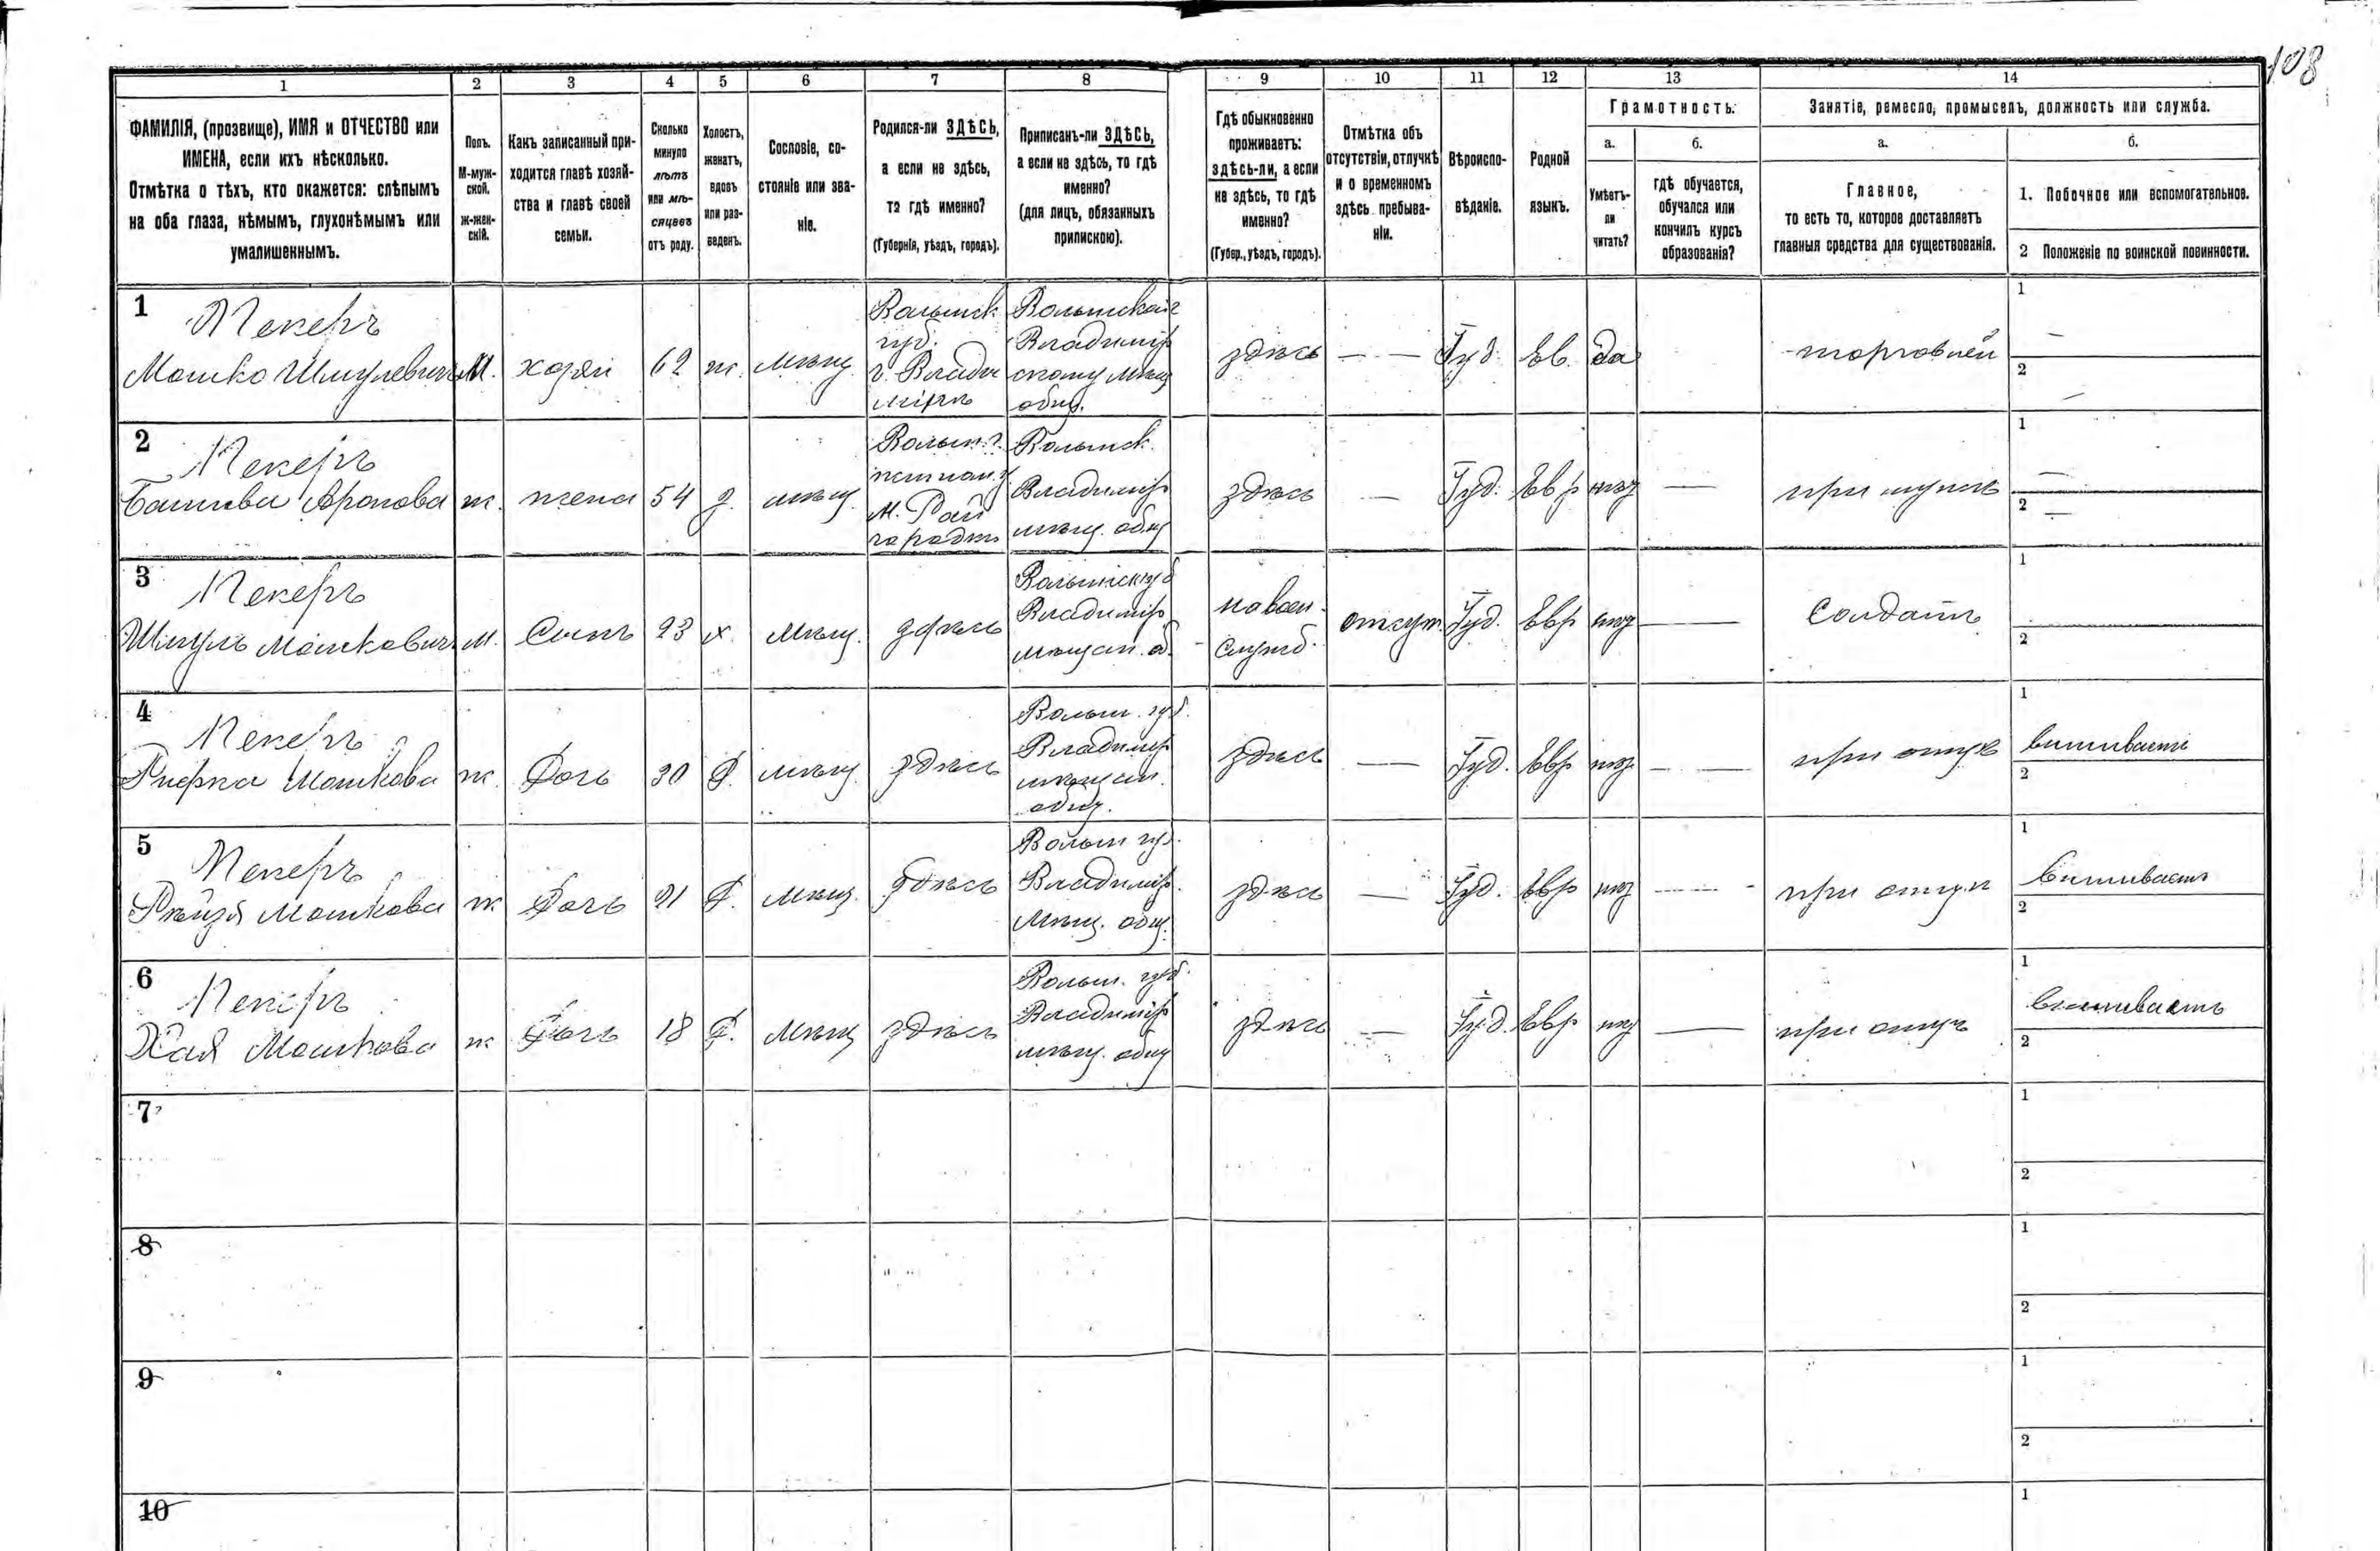 108
1 2 3 4 5 6 7 8 9 10 11 12 13 14
ФАМИЛІЯ, (прозвище), ИМЯ и ОТЧЕСТВО или
ИМЕНА, если ихъ нѣсколько.
Отмѣтка о тѣхъ, кто окажется: слѣпымъ
на оба глаза, нѣмымъ, глухонѣмымъ или
умалишеннымъ.
Полъ.
М-муж-
ской.
ж-жен-
скій.
Какъ записанный при-
ходится главѣ хозяй-
ства и главѣ своей
семьи.
Сколько
минуло
лѣтъ
или мѣ-
сяцевъ
отъ роду.
Холостъ,
женатъ,
вдовъ
или раз-
веденъ.
Сословіе, со-
стояніе или зва-
ніе.
Родился-ли ЗДѢСЬ,
а если не здѣсь,
то гдѣ именно?
(Губернія, уѣздъ, городъ).
Приписанъ-ли ЗДѢСЬ,
а если не здѣсь, то гдѣ
именно?
(для лицъ, обязанныхъ
припискою).
Гдѣ обыкновенно
проживаетъ:
здѣсь-ли, а если
не здѣсь, то гдѣ
именно?
(Губер., уѣздъ, городъ).
Отмѣтка объ
отсутствіи, отлучкѣ
и о временномъ
здѣсь пребыва-
ніи.
Вѣроиспо-
вѣданіе.
Родной
языкъ.
Грамотность.
а.
Умѣетъ-
ли
читать?
б.
гдѣ обучается,
обучался или
кончилъ курсъ
образованія?
Занятіе, ремесло, промыселъ, должность или служба.
а.
Главное,
то есть то, которое доставляетъ
главныя средства для существованія.
б.
1. Побочное или вспомогательное.
2 Положеніе по воинской повинности.
1
Пекеръ
Мошко Шмулевичъ
М.
хозяи
62
ж.
мѣщ.
Волынск
губ.
г. Влади
мірѣ
Волынской г
Владимір
скому мѣщ
общ.
здѣсь
— —
Іуд.
Ев.
да
торговлей
1
—
2
—
2
Пекеръ
Башева Аронова
ж.
жена
54
з.
мѣщ.
Волын. г.
М. Рай
городъ
Волынск.
Владимір
мѣщ. общ
здѣсь
—
Іуд.
Евр
—
при мужѣ
1
—
2
—
3
Пекеръ
Шмуль Мошковичъ
М.
Сынъ
23
х.
Мѣщ.
здѣсь
Волынск губ
Владимір
мѣщан. об.
на воен.
служб.
отсут.
Іуд.
Евр
—
Солдатъ
1
2
4
Пекеръ
Мошкова
ж.
Дочь
30
Д.
мѣщ.
здѣсь
Волын. губ.
Владимір
мѣщан.
общ.
здѣсь
—
Іуд.
Евр
— —
при отцѣ
1
вишиваетъ
2
5
Пекеръ
Рейзя Мошкова
ж
Дочь
21
Д.
мѣщ.
здѣсь
Волын губ.
Владимір.
Мѣщ. общ.
здѣсь
—
Іуд.
Евр
—
при отцѣ
1
вишиваетъ
2
6
Пекеръ
Хая Мошкова
ж
Дочь
18
Д.
мѣщ
здѣсь
Волын. губ.
Владимір
мѣщ. общ
здѣсь
—
Іуд.
Евр
—
при отцѣ
1
вишиваетъ
2
7
1
2
8
1
2
9
1
2
10
1